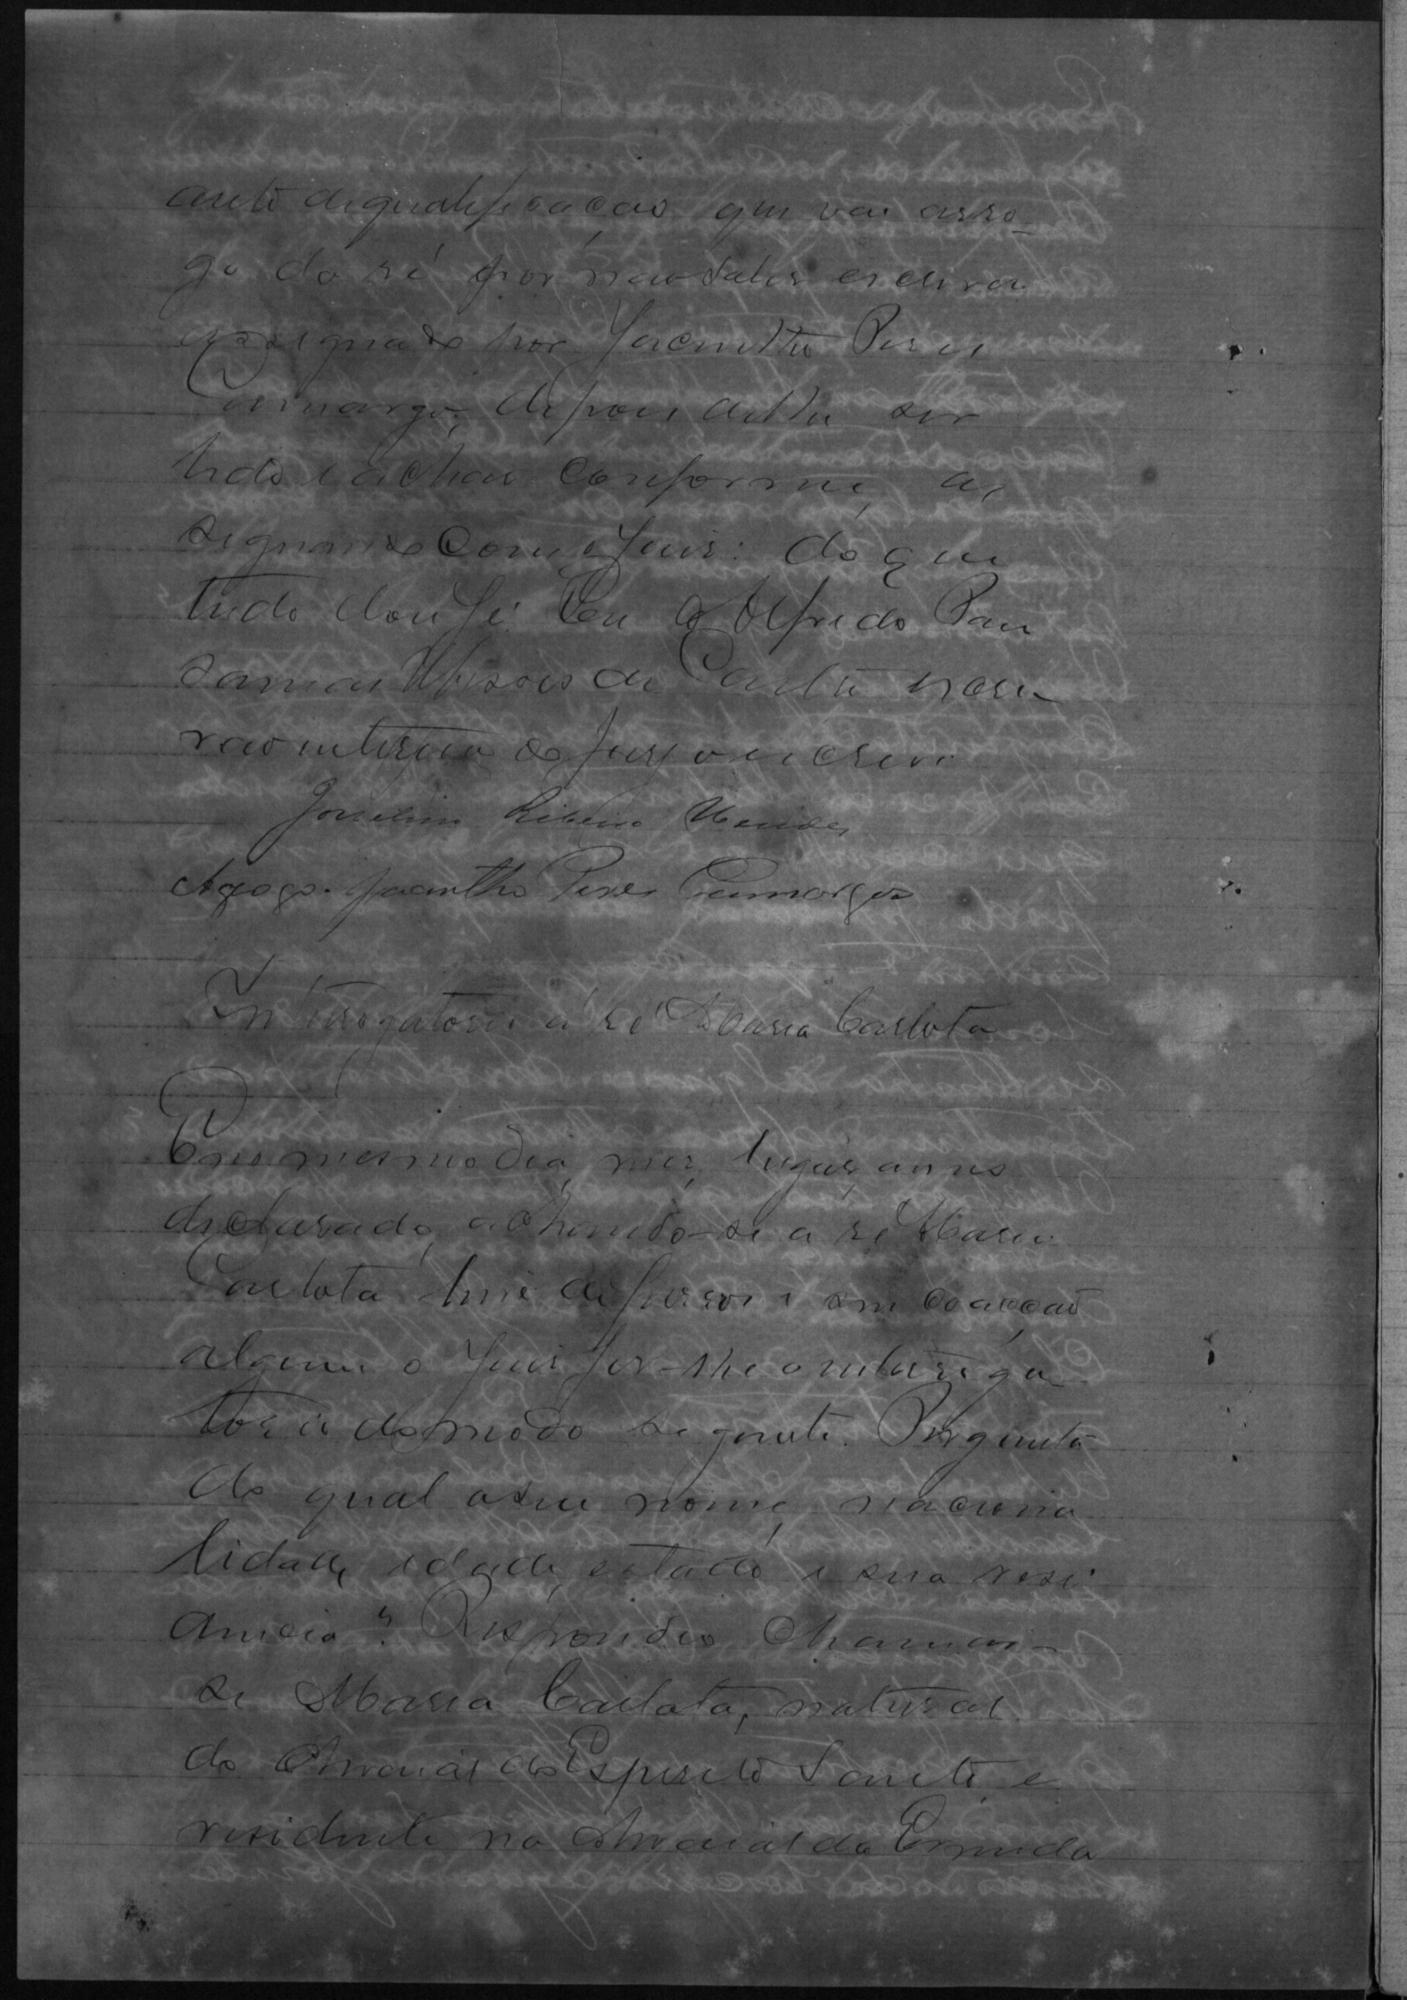 auto de qualificação que vai arro-
go da ré por não saber escrever
assignado por Jacintho Peres
Camargo, depois de lhe ser
lido e achar conforme, as
signando com o Juis: do que
tudo dou fé. Eu Alfredo
de Castro
interino do Jury o escrevi
Joselino Ribeiro Mendes
Arogo. Jacintho Peres Camargos
Interrogatorio á ré Maria Carlota
E no mesmo dia, mez, lugar, anno
declarado, achando-se a ré Maria
Carlota livre de ferros e sem coacção
alguma o Juis fez-lhe o interroga
torio do modo seguinte. Pergunta
do qual o seu nome, naciona
lidade, idade, estado e sua resi
dencia? Respondeo chamar-
se Maria Carlota, natural
do Arraial do Espirito Santo e
residente no Arraial da Ermida